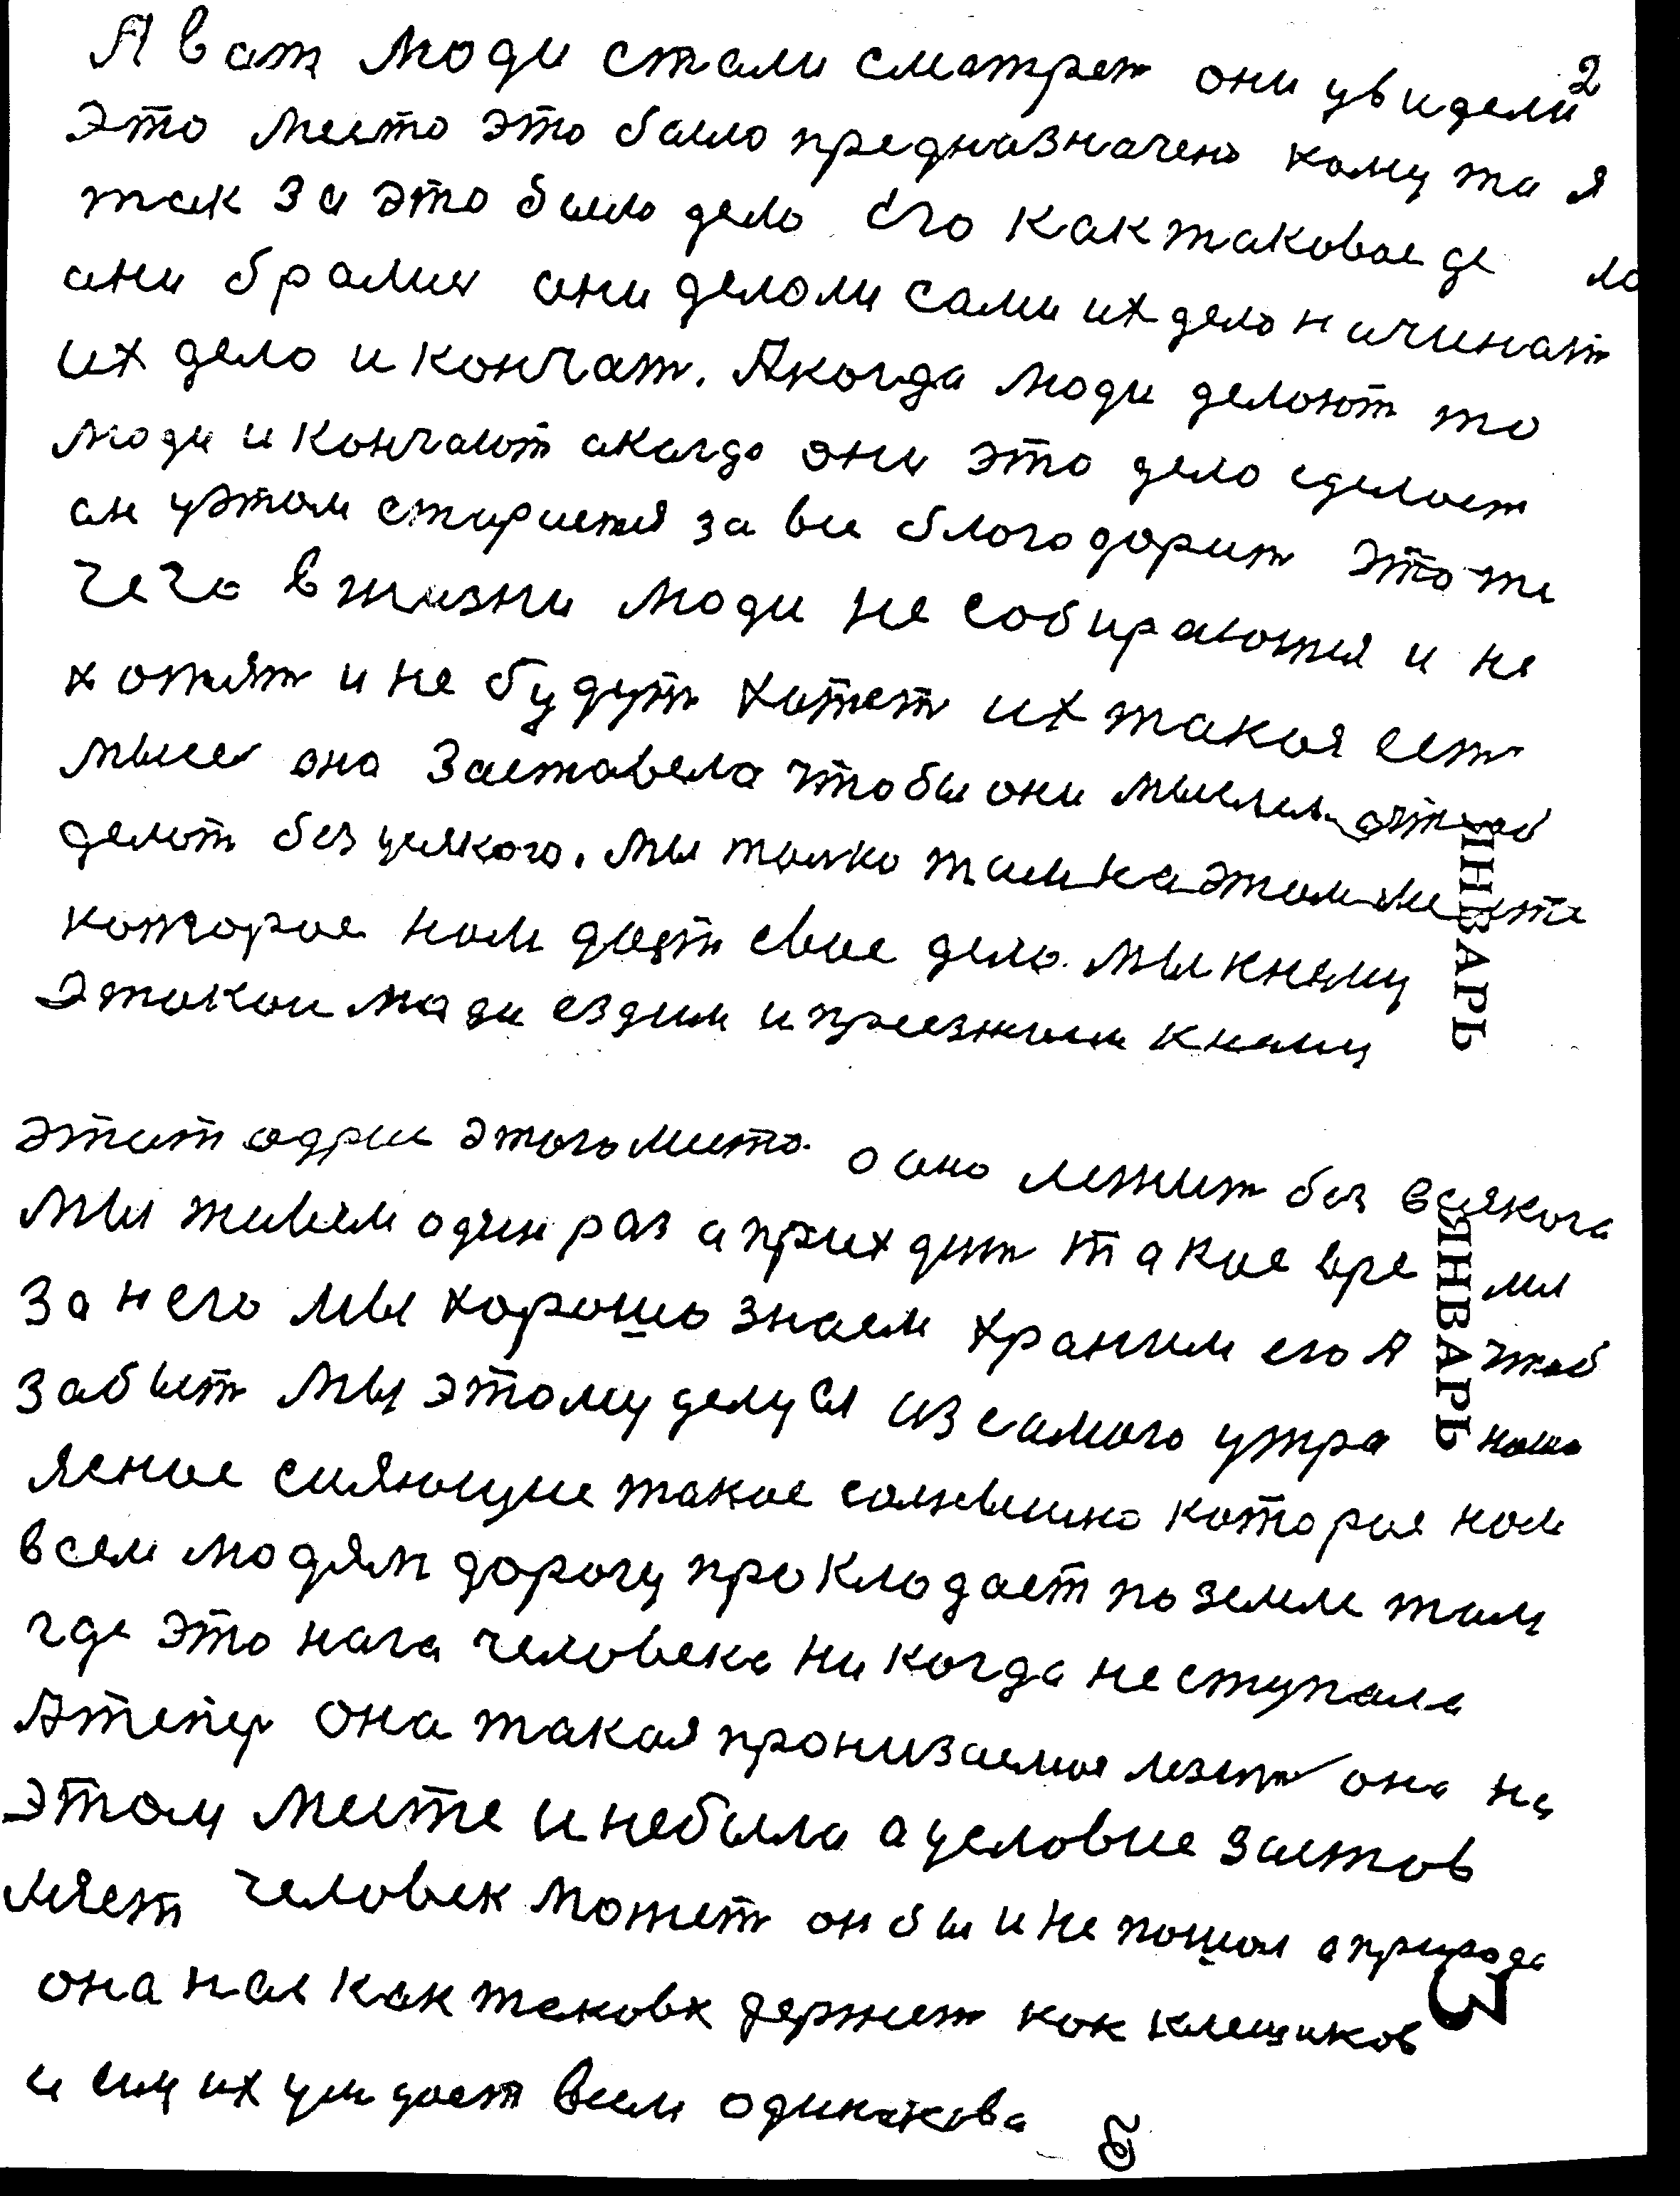 А вот люди стали сматрет они увидели 2
это место это было предназначено кому та я
так за это было дело его как таковое де ло
они брались они делоли сами их дело начинат
их дело и кончат. А когда люди делоют то
люди и кончают а когдо они это дело сделает
он уэтом старается за все благодорит это же
чего в жизни люди не собираются и не
хотят и не будут хотет их такоя ест
мысл она заставела чтобы они мыслели чтоб
делот без усякого. Мы толко там на этом месте
которое нам дает свое дело. Мы кнему
этакои люди ездим и приезжаем кнему
этат адрис этого места. а оно лежит без всякога
мы живем один раз а приходит такое вре мя
За него мы хорошо знаем храним его я чтоб
забыт мы этому делу вся из самого утра наше
ясное сияющие такое солнышко которое нам
всем людям дорогу проклодает по земле там
где это нага человека никогда не ступала
А тепер она такая пронизаемоя лезит она на
этом месте и небыла а условие застов
ляет человек может он бы и не пошол а природа
она нас как таковх держит как клещиков
и сиц их ум дает всем одинакова
ЯНВАРЬ
ЯНВАРЬ
3